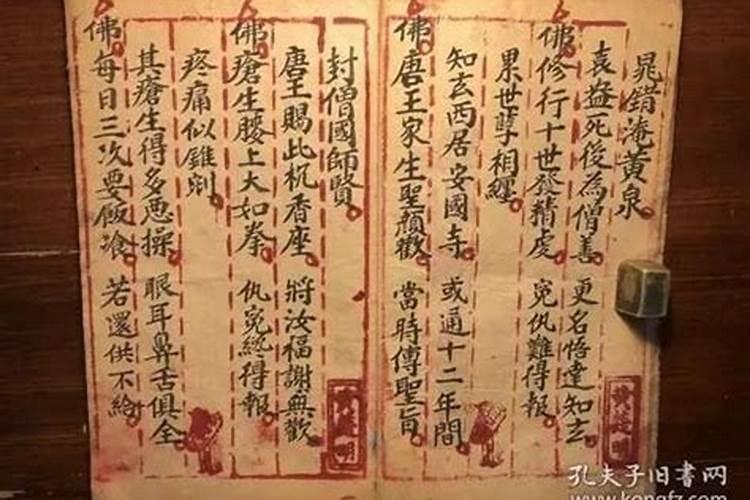 晁錯淹黃泉
袁益死後為僧善 更名悟達知玄
佛修行十世發精虔 冤仇難得報
累世孽相纏
知玄西居安國寺 或通十二年間
佛唐王家生聖顏歡 當時傅聖旨
封僧國師賢
唐王賜此杌香座 將汝福謝無歡
佛瘡生腰上大如拳 仇冤終得報
疼痛似錐剜
其瘡生得多悪操 眼耳鼻舌俱全
佛每日三次要飯飡 若還供不給
孔夫子旧书网